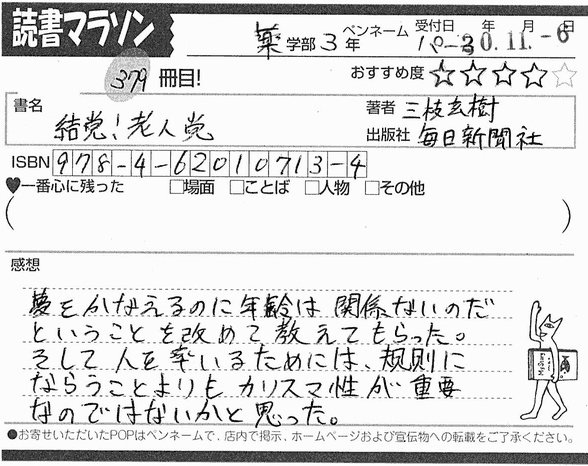 読書マラソン
薬 学部 3 年
ペンネーム
パーヨ
受付日 年 月 日
-3 0.11.-6
379 冊目!
おすすめ度 ★★★★☆
書名 結党!老人党
著者 三枝玄樹
出版社 毎日新聞社
ISBN 978-4-62010713-4
♥一番心に残った □場面 □ことば □人物 □その他
( )
感想
夢をかなえるのに年齢は関係ないのだ
ということを改めて教えてもらった。
そして人を率いるためには、規則に
ならうことよりもカリスマ性が重要
なのではないかと思った。
●お寄せいただいたPOPはペンネームで、店内で掲示、ホームページおよび宣伝物への転載をご了承ください。